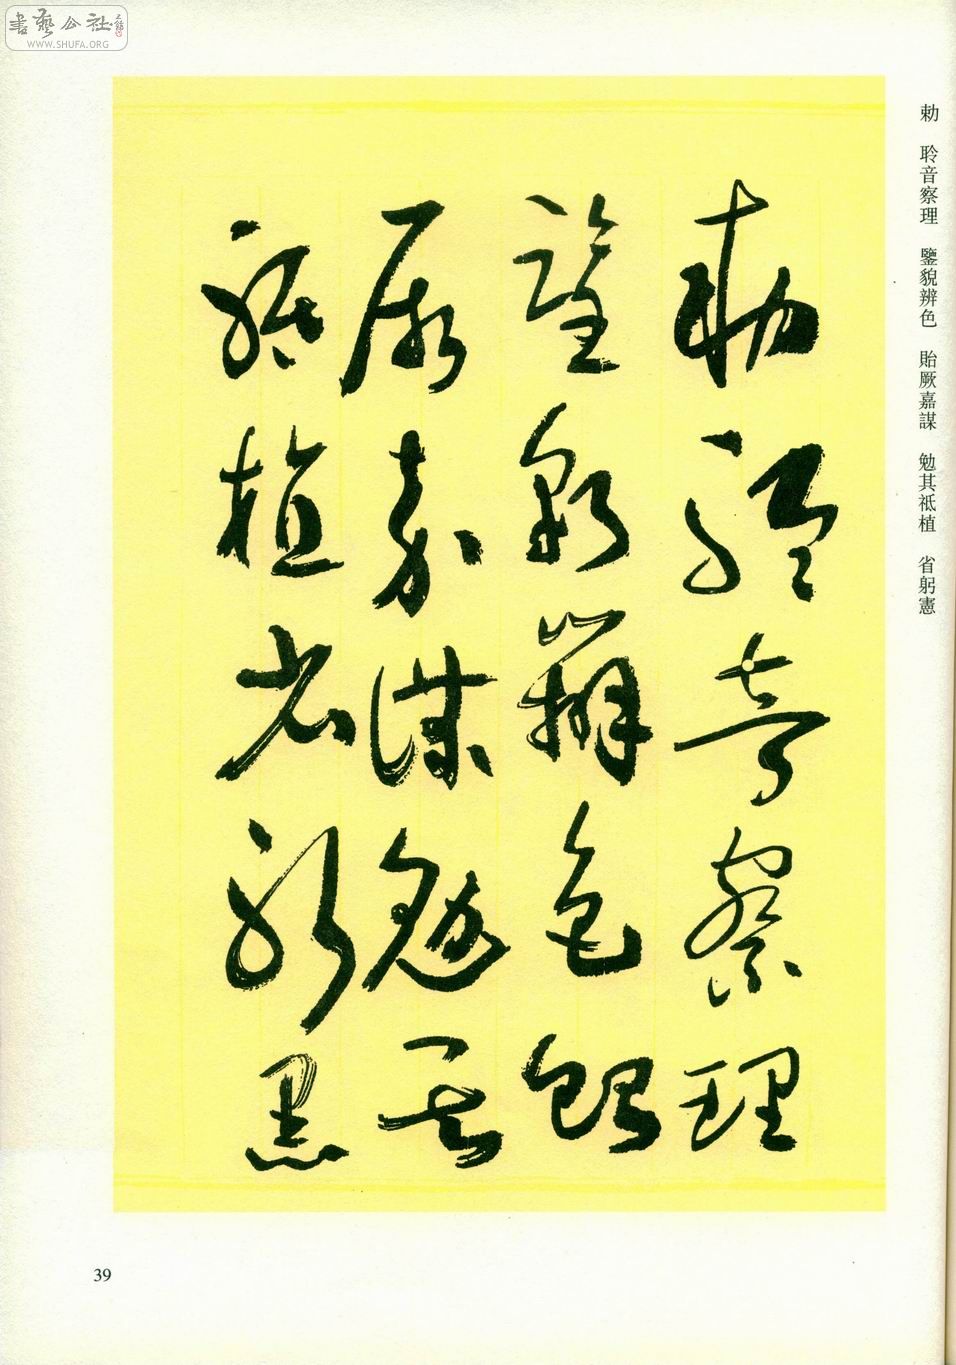 書藝公社
WWW.SHUFA.ORG
勅 聆音察理 鑒貌辨色 貽厥嘉謀 勉其祗植 省躬憲
勅聆音察理
鑒貌辨色貽
厥嘉謀勉其
祗植省躬
39